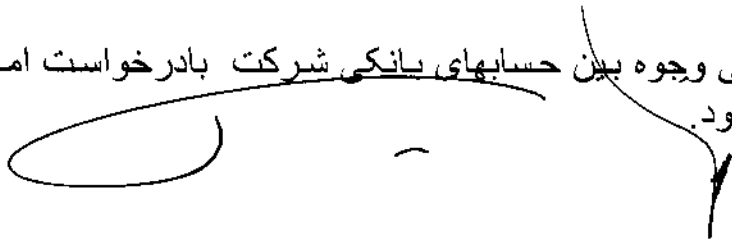 وجوه بین حسابهای بانکی شرکت بادرخواست